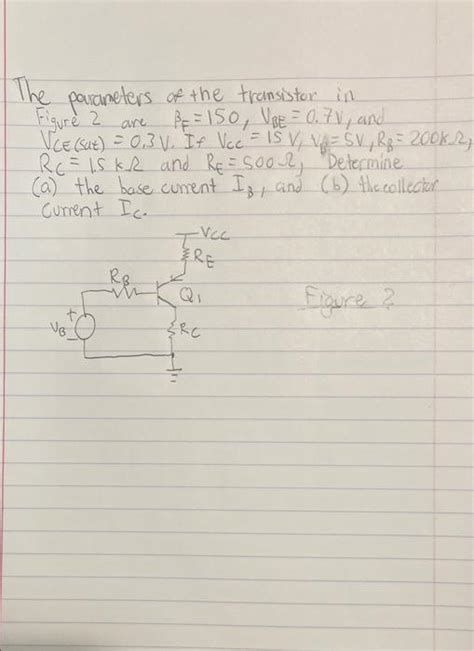 The parameters of the transistor in
Figure 2 are βF = 150, VBE = 0.7V, and
VCE(sat) = 0.3V. If VCC = 15 V, VB = 5V, RB = 200kΩ,
RC = 1.5 kΩ and RE = 500Ω, Determine
(a) the base current IB, and (b) the collector
Current IC.
VCC
RE
RB
Q1
Figure 2
+
VB
-
RC